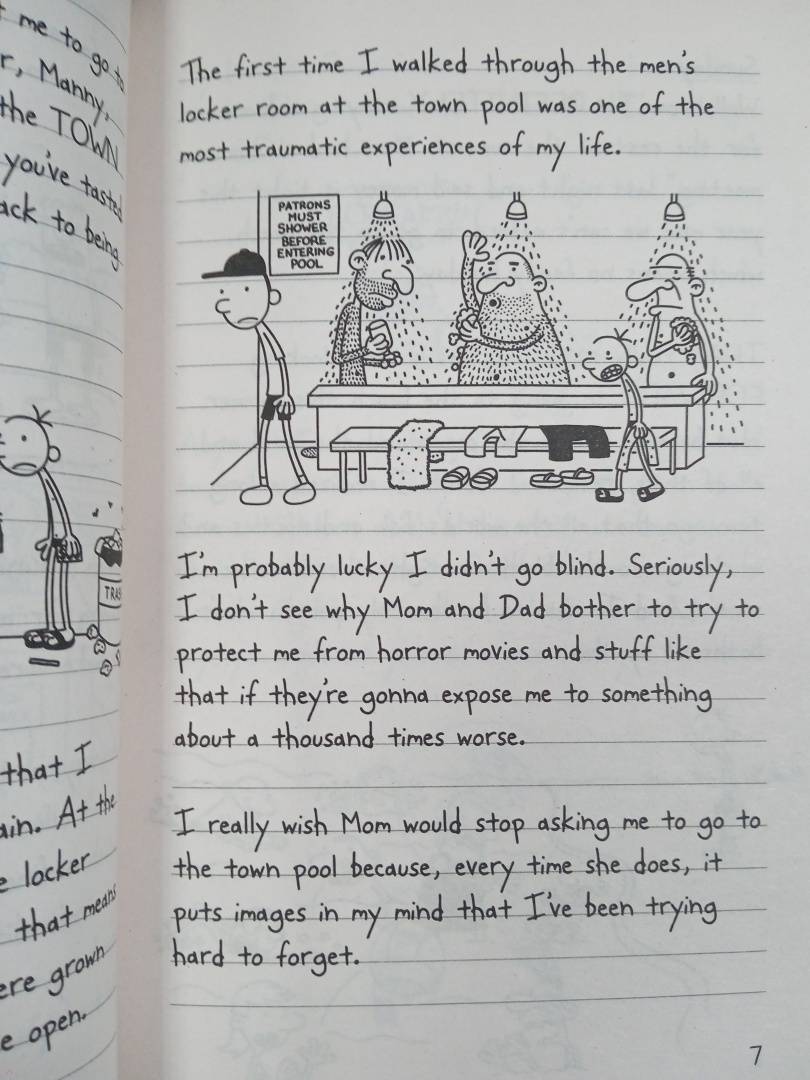 me to go to
Manny,
the TOWN
you've tasted
back to being
TRASH
that I
At the
locker
that means
grown
open.
The first time I walked through the men's
locker room at the town pool was one of the
most traumatic experiences of my life.
PATRONS
MUST
SHOWER
BEFORE
ENTERING
POOL
I'm probably lucky I didn't go blind. Seriously,
I don't see why Mom and Dad bother to try to
protect me from horror movies and stuff like
that if they're gonna expose me to something
about a thousand times worse.
I really wish Mom would stop asking me to go to
the town pool because, every time she does, it
puts images in my mind that I've been trying
hard to forget.
7